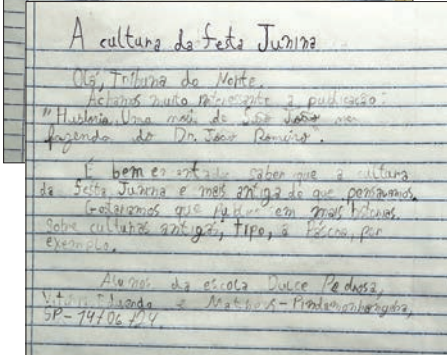 A cultura da festa Junina
Olá, Tribuna do Norte.
Achamos muito interessante a publicação:
"História. Uma noite de São João na
fazenda do Dr. João Romeiro".
É bem saber que a cultura
da festa Junina e mais antiga do que pensavamos.
Gostariamos que em mais histórias
sobre culturas antigas, tipo, a Páscoa, por
exemplo.
Alunos da escola Dulce Pedrosa,
Eduardo e Matheus - Pindamonhangaba,
SP - 14/06/24.